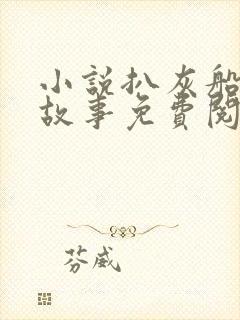 小說扒灰船
故事免費閱
芬威